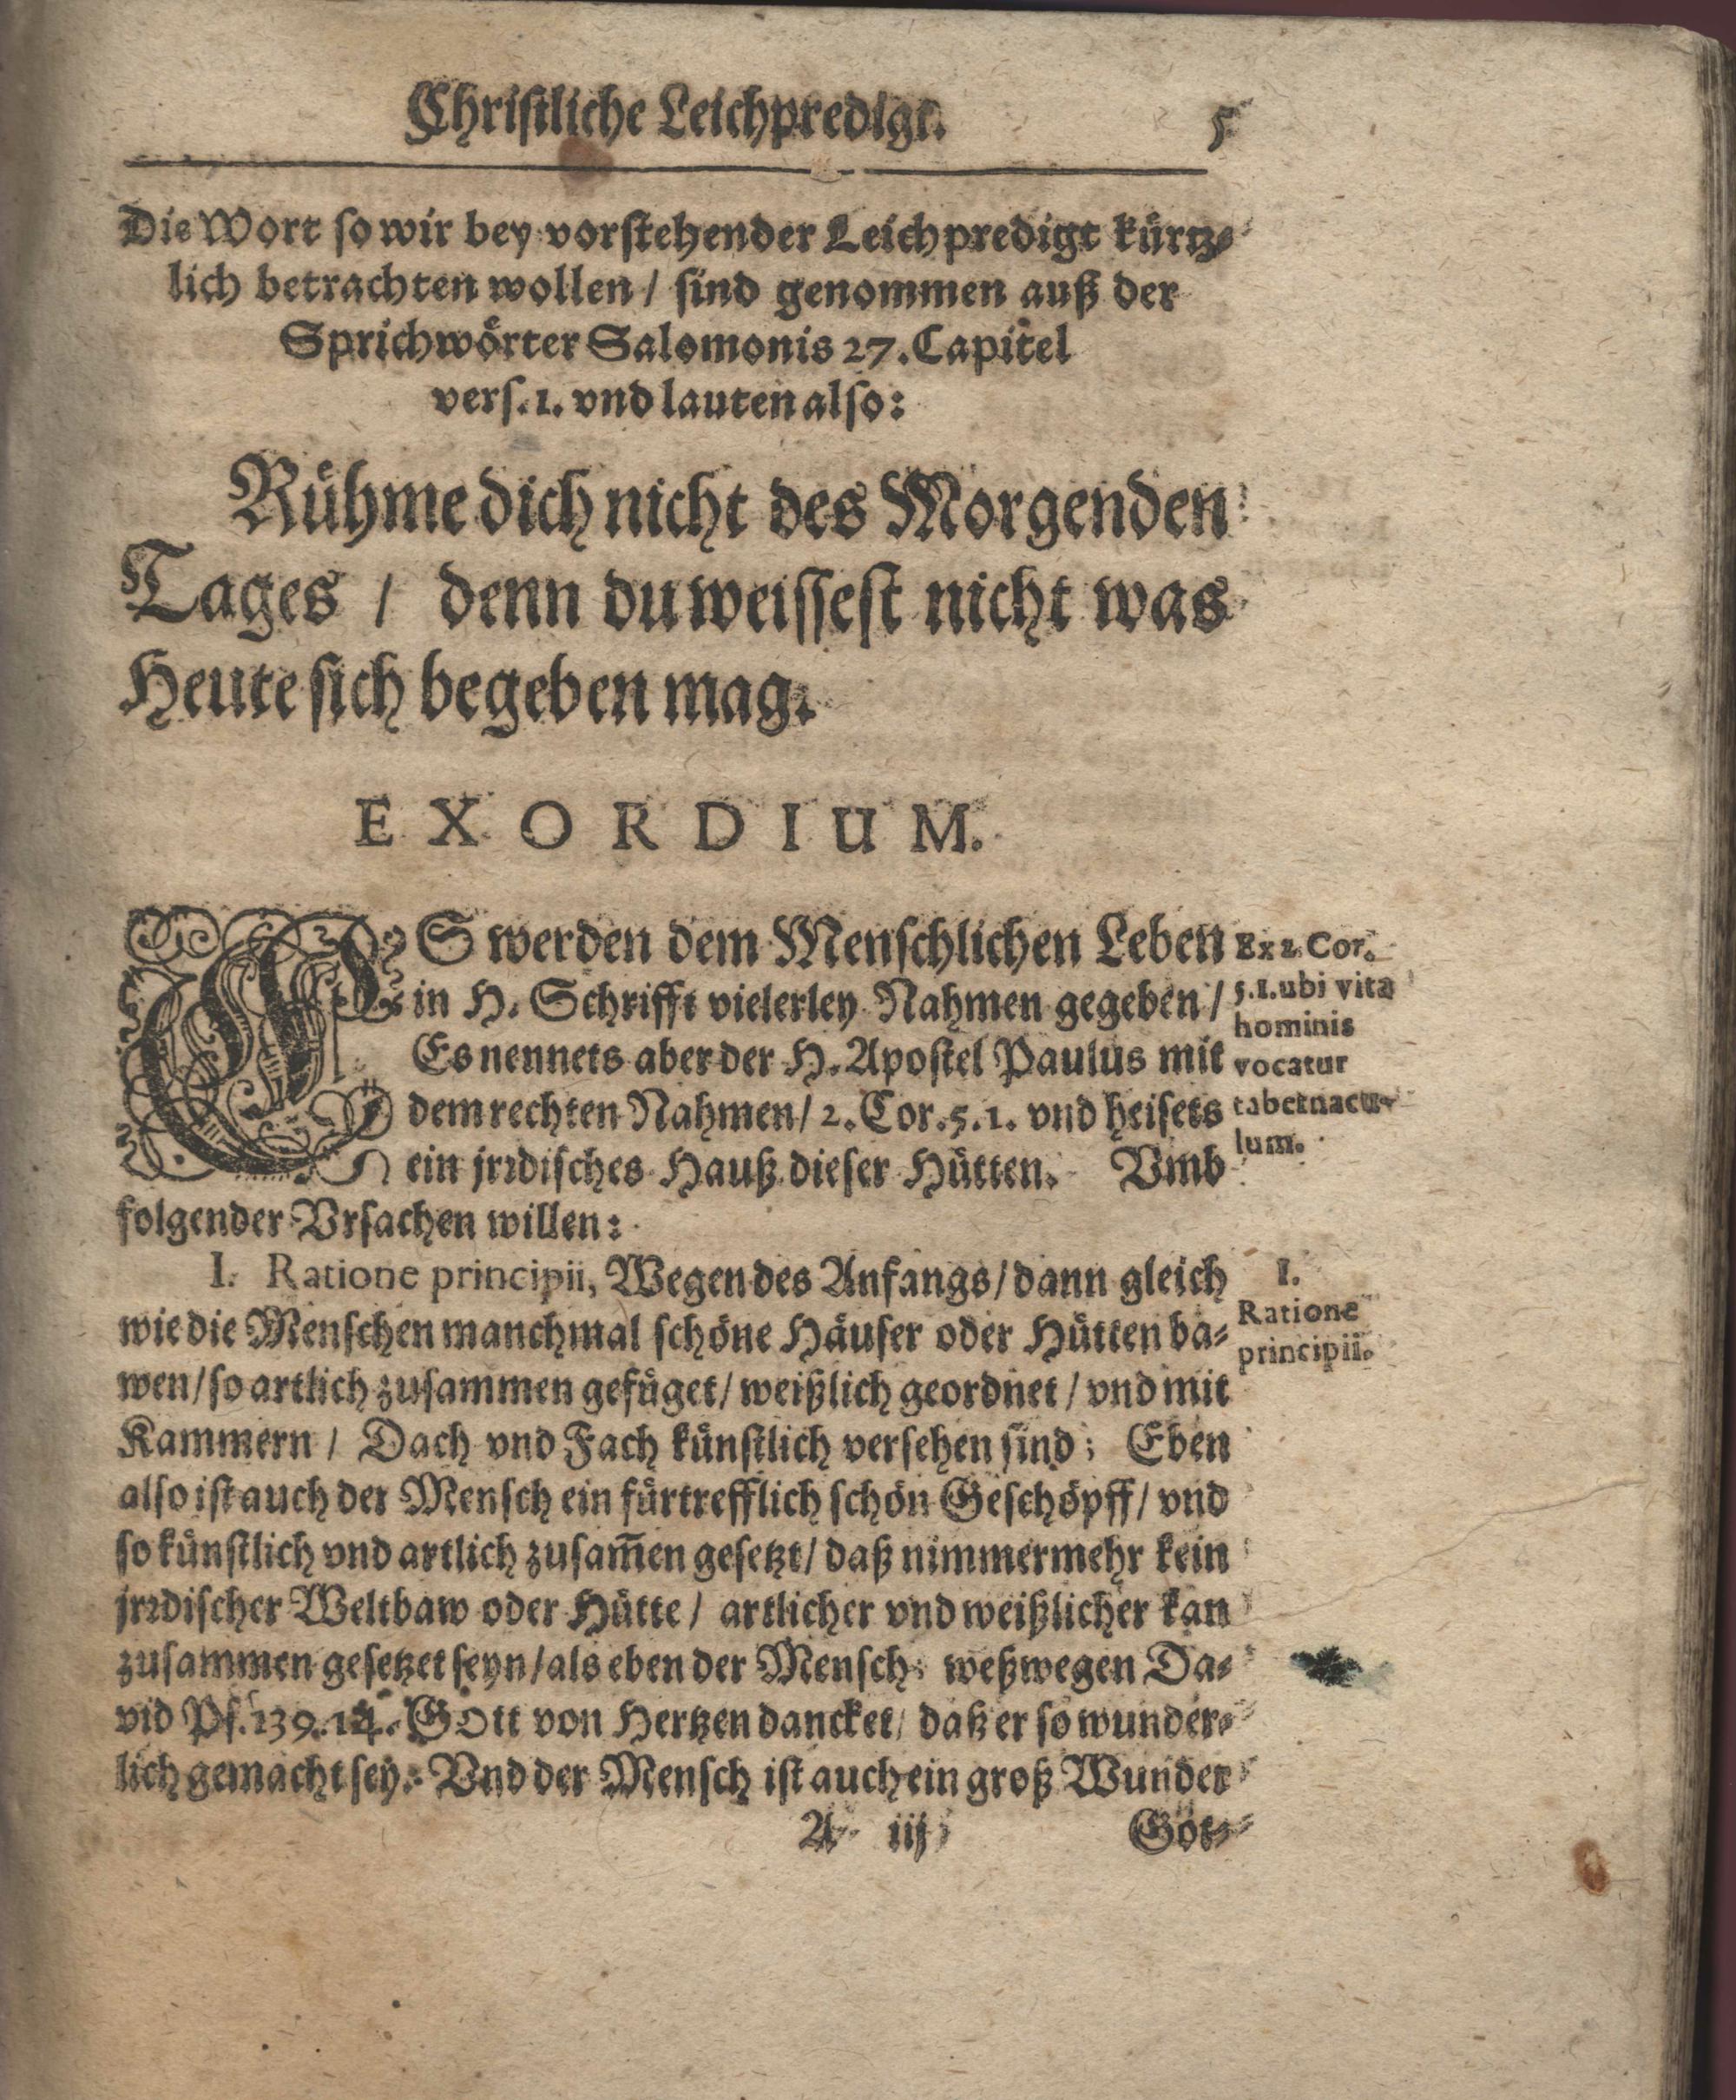 Christliche Leichpredigt. 5
Die Wort so wir bey vorstehender Leichpredigt kürtz-
lich betrachten wollen / sind genommen auß der
Sprichwörter Salomonis 27. Capitel
vers. 1. vnd lauten also:
Rühme dich nicht des Morgenden
Tages / denn du weissest nicht was
Heute sich begeben mag.
EXORDIUM.
ES werden dem Menschlichen Leben
in H. Schrifft vielerley Nahmen gegeben /
Es nennets aber der H. Apostel Paulus mit
dem rechten Nahmen / 2. Cor. 5. 1. vnd heisets
ein jrrdisches Hauß dieser Hütten. Vmb
folgender Vrsachen willen:
Ex 2. Cor.
5. 1. ubi vita
hominis
vocatur
tabernacu-
lum.
I. Ratione principii, Wegen des Anfangs / dann gleich
wie die Menschen manchmal schöne Häuser oder Hütten ba-
wen / so artlich zusammen gefüget / weißlich geordnet / vnd mit
Kammern / Dach vnd Fach künstlich versehen sind; Eben
also ist auch der Mensch ein fürtrefflich schön Geschöpff / vnd
so künstlich vnd artlich zusam̄en gesetzt / daß nimmermehr kein
jrrdischer Weltbaw oder Hütte / artlicher vnd weißlicher kan
zusammen gesetzet seyn / als eben der Mensch: weßwegen Da-
vid Ps. 139. 14. GOtt von Hertzen dancket / daß er so wunder-
lich gemacht sey. Vnd der Mensch ist auch ein groß Wunder
I.
Ratione
principii.
A iij Göt-